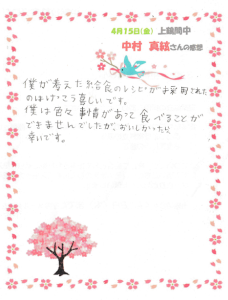 4月15日(金) 上鶴間中
中村 真絃さんの感想
僕が考えた給食のレシピが採用された
のはけっこう喜しいです。
僕は色々事情があって食べることが
できませんでしたが、おいしかったら
幸いです。